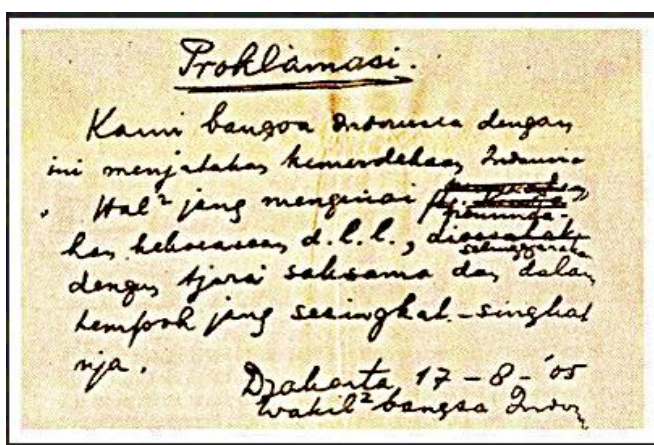 Proklamasi.
Kami bangsa Indonesia dengan
ini menjatakan kemerdekaan Indonesia
. Hal² jang mengenai
pemindahan
kekoeasaan d.l.l., dioesahakan
selenggarakan
dengan tjara saksama dan dalam
tempoh jang sesingkat-singkat
nja.
Djakarta, 17 - 8 - '05
Wakil² bangsa Indon